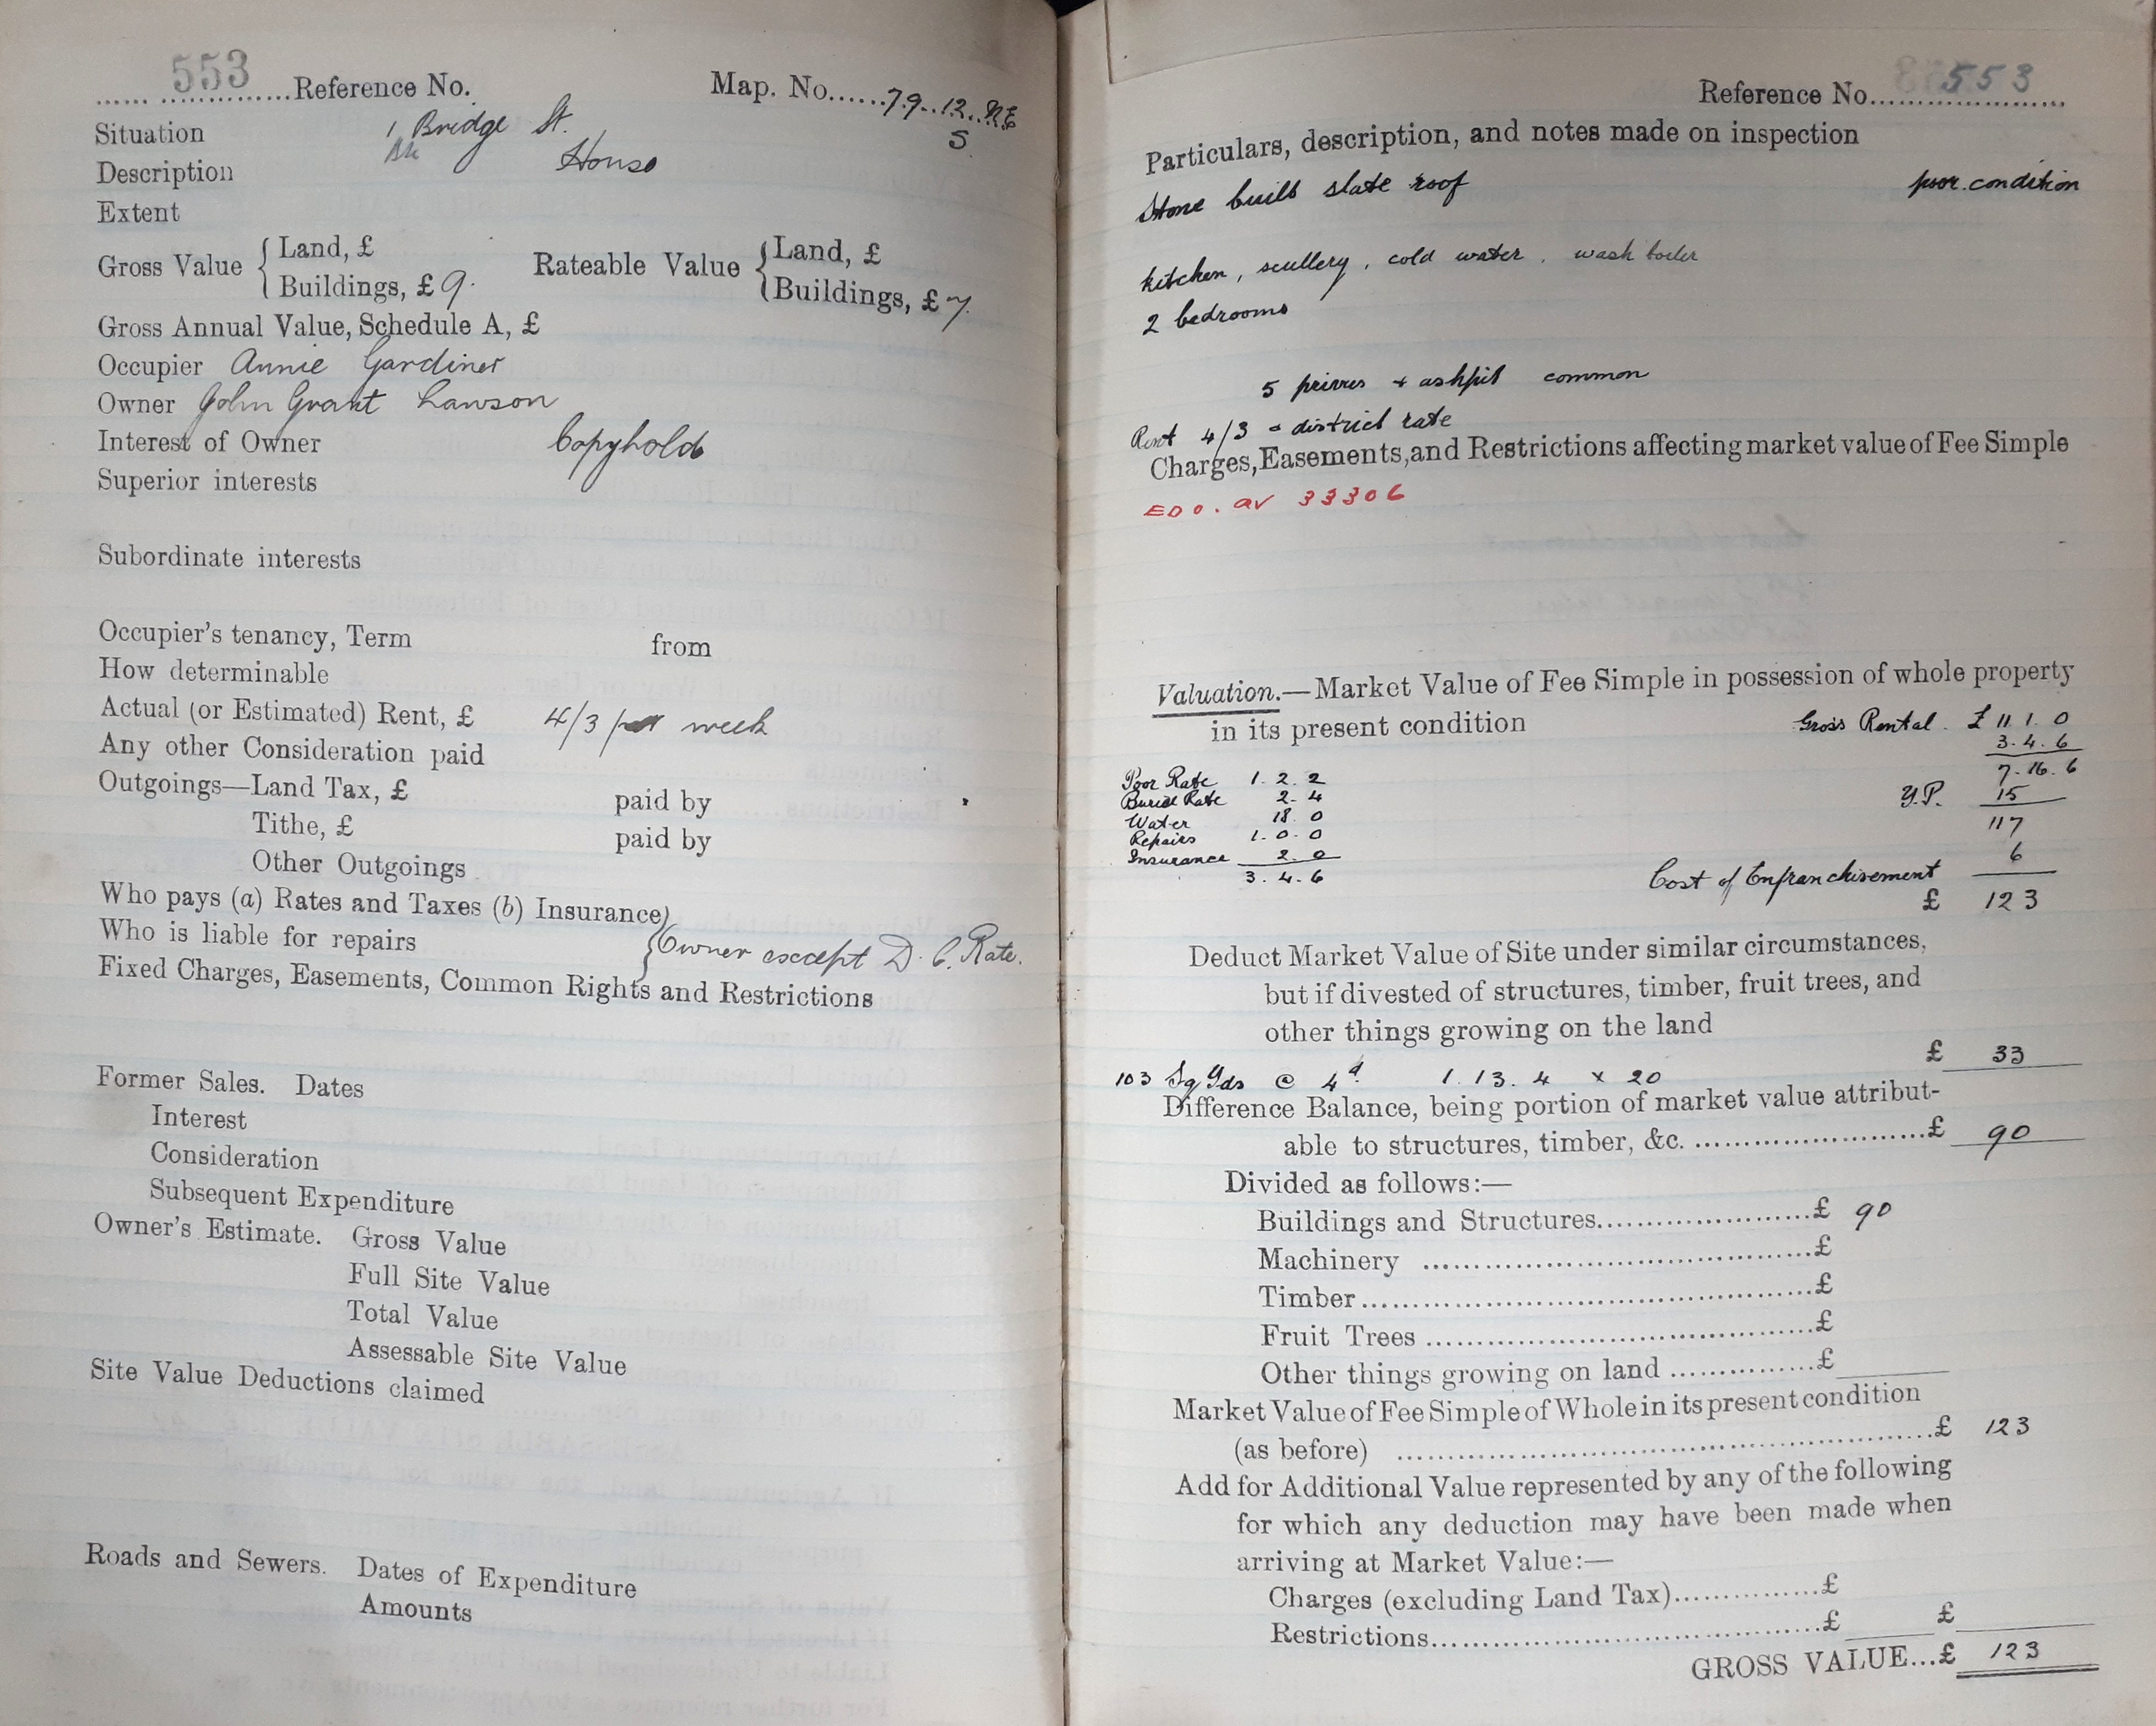 553 Reference No. Map. No. 79.12.NE
S
Situation 1 Bridge St.
Description House
Extent
Gross Value { Land, £ Rateable Value { Land, £
Buildings, £ 9. Buildings, £ 7.
Gross Annual Value, Schedule A, £
Occupier Annie Gardiner
Owner John Grant Lawson
Interest of Owner Copyhold
Superior interests
Subordinate interests
Occupier's tenancy, Term from
How determinable
Actual (or Estimated) Rent, £ 4/3 per week
Any other Consideration paid
Outgoings—Land Tax, £ paid by
Tithe, £ paid by
Other Outgoings
Who pays (a) Rates and Taxes (b) Insurance
Who is liable for repairs } Owner except D. C. Rate.
Fixed Charges, Easements, Common Rights and Restrictions
Former Sales. Dates
Interest
Consideration
Subsequent Expenditure
Owner's Estimate. Gross Value
Full Site Value
Total Value
Assessable Site Value
Site Value Deductions claimed
Roads and Sewers. Dates of Expenditure
Amounts
Reference No. 553
Particulars, description, and notes made on inspection
Stone built slate roof poor condition
kitchen, scullery, cold water, wash boiler
2 bedrooms
5 privies + ashpit common
Rent 4/3 - district rate
Charges, Easements, and Restrictions affecting market value of Fee Simple
33306
Valuation.—Market Value of Fee Simple in possession of whole property
in its present condition Gross Rental. £ 11. 1. 0
3. 4. 6
Poor Rate 1. 2. 2 7. 16. 6
Burial Rate 2. 4 Y.P. 15
Water 18. 0 117
Repairs 1. 0. 0 6
Insurance 2. 0 Cost of Enfranchisement
3. 4. 6 £ 123
Deduct Market Value of Site under similar circumstances,
but if divested of structures, timber, fruit trees, and
other things growing on the land
£ 33
103 Sq Yds @ 4d. 1. 13. 4 x 20
Difference Balance, being portion of market value attribut-
able to structures, timber, &c. £ 90
Divided as follows:—
Buildings and Structures £ 90
Machinery £
Timber £
Fruit Trees £
Other things growing on land £
Market Value of Fee Simple of Whole in its present condition
(as before) £ 123
Add for Additional Value represented by any of the following
for which any deduction may have been made when
arriving at Market Value:—
Charges (excluding Land Tax) £
Restrictions £ £
GROSS VALUE...£ 123